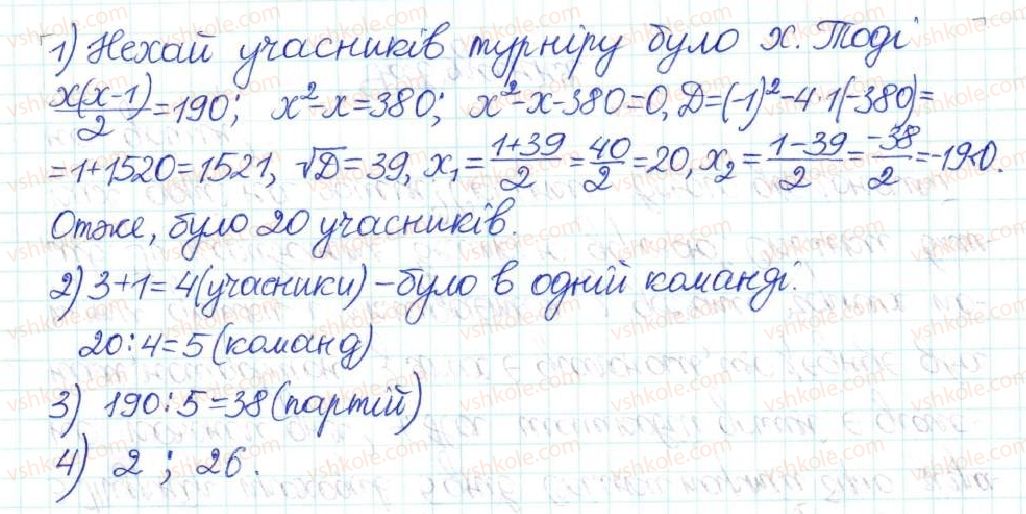 1) Нехай учасників турніру було x. Тоді
x(x-1)/2 = 190; x²-x=380; x²-x-380=0, D=(-1)²-4·1(-380)=
=1+1520=1521, √D=39, x₁=(1+39)/2=40/2=20, x₂=(1-39)/2=-38/2=-19<0.
Отже, було 20 учасників.
2) 3+1=4(учасники) – було в одній команді.
20:4=5 (команд)
3) 190:5=38 (партій)
4) 2 ; 26.